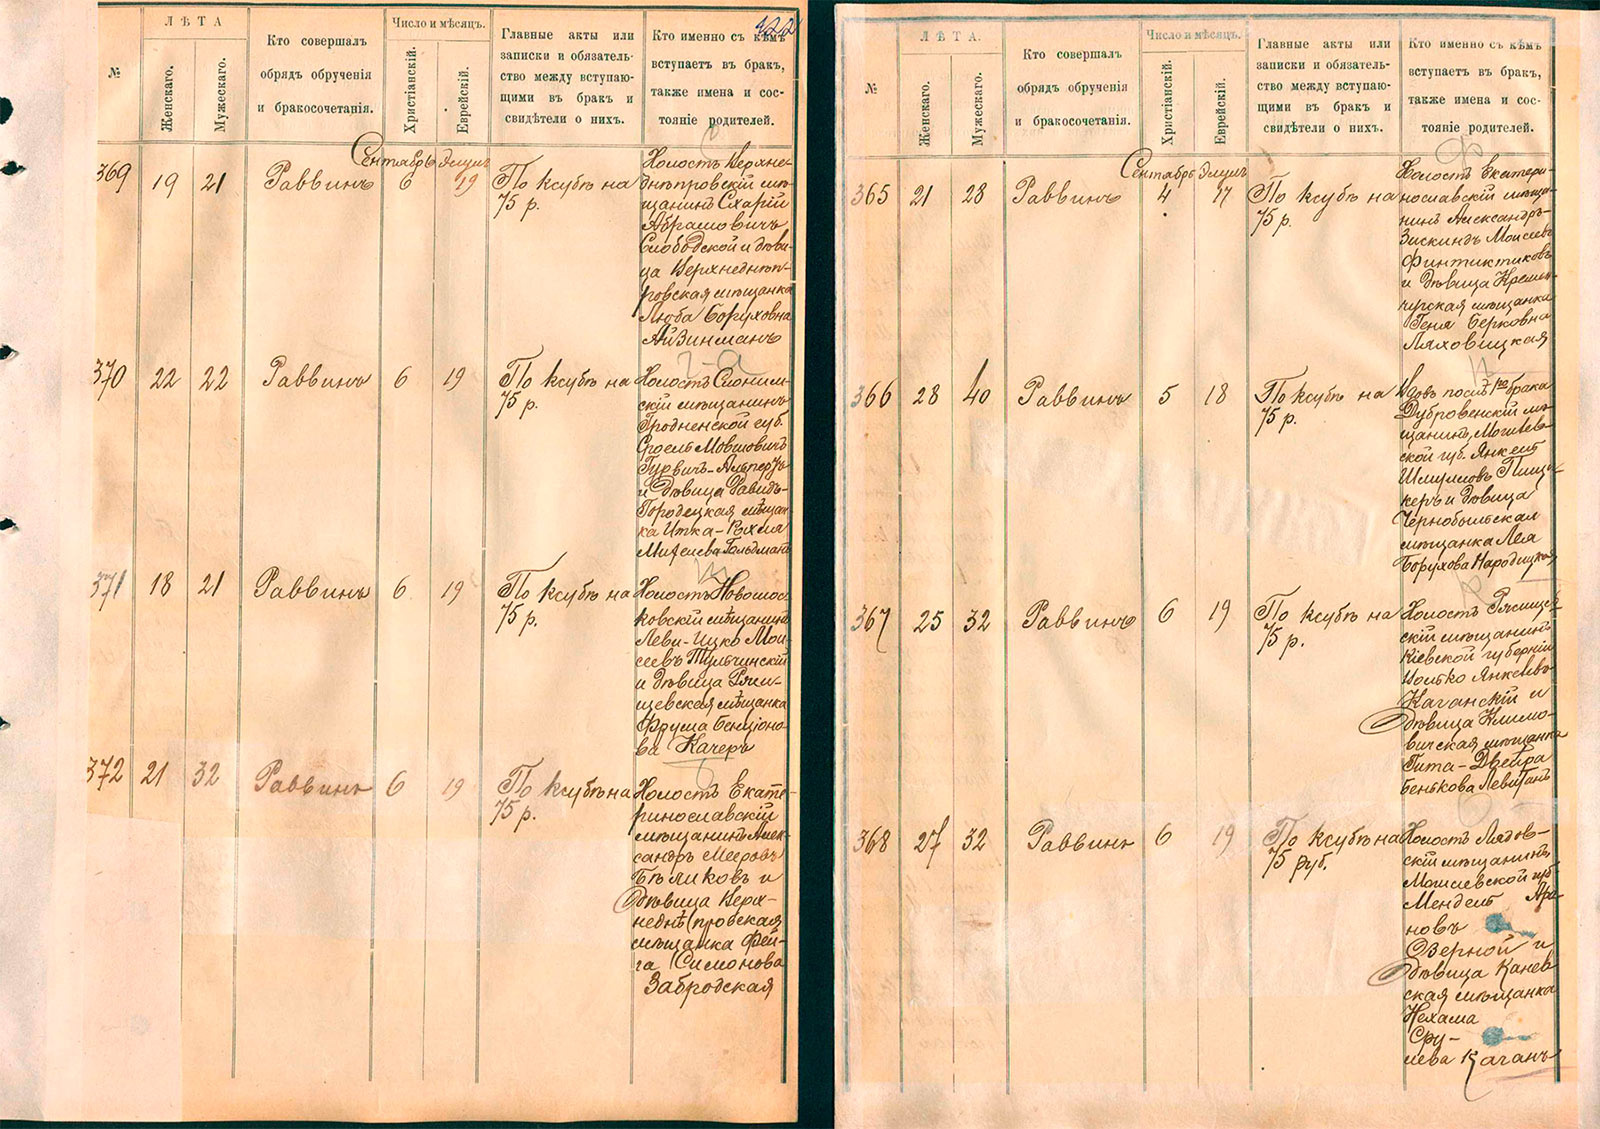 422
№
ЛѢТА
Женскаго.
Мужескаго.
Кто совершалъ
обрядъ обрученія
и бракосочетанія.
Число и мѣсяцъ.
Христіанскій.
Еврейскій.
Главные акты или
записки и обязатель-
ство между вступаю-
щими въ бракъ и
свидѣтели о нихъ.
Кто именно съ кѣмъ
вступаетъ въ бракъ,
также имена и сос-
тояніе родителей.
Сентябрь Элулъ
369 19 21 Раввинъ 6 19 По ксубѣ на
75 р.
Холостъ Верхне-
днѣпровскій мѣ-
щанинъ Схарій
Абрамовичъ
Слободской и дѣви-
ца Верхнеднѣп-
ровская мѣщанка
Люба Боруховна
Айзинманъ
370 22 22 Раввинъ 6 19 По ксубѣ на
75 р.
Холостъ Слоним-
скій мѣщанинъ
Гродненской губ.
Сроель Мовшовичъ
Гурвичъ-Альперъ
и дѣвица Давидъ-
Городецкая мѣщан-
ка Итка-Рохля
Михелева Гольдманъ
371 18 21 Раввинъ 6 19 По ксубѣ на
75 р.
Холостъ Новомос-
ковскій мѣщанинъ
Леви-Ицко Мои-
сеевъ Тульчинскій
и дѣвица Ржи-
щевская мѣщанка
Фрума Бенціоно-
ва Качеръ
372 21 32 Раввинъ 6 19 По ксубѣ на
75 р.
Холостъ Екате-
ринославскій
мѣщанинъ Алек-
сандръ Мееровъ
Бѣликовъ и
дѣвица Верх-
неднѣпровская
мѣщанка Фей-
га Симонова
Забродская
№
ЛѢТА.
Женскаго.
Мужескаго.
Кто совершалъ
обрядъ обрученія
и бракосочетанія.
Число и мѣсяцъ.
Христіанскій.
Еврейскій.
Главные акты или
записки и обязатель-
ство между вступаю-
щими въ бракъ и
свидѣтели о нихъ.
Кто именно съ кѣмъ
вступаетъ въ бракъ,
также имена и сос-
тояніе родителей.
Сентябрь Элулъ
365 21 28 Раввинъ 4 17 По ксубѣ на
75 р.
Холостъ Екатери-
нославскій мѣща-
нинъ Александръ-
Зискиндъ Моисеевъ
Финтиктиковъ
и дѣвица Кремен-
чугская мѣщанка
Геня Берковна
Ляховицкая
366 28 40 Раввинъ 5 18 По ксубѣ на
75 р.
Вдовъ послѣ 1го брака
Дубровенскій мѣ-
щанинъ, Могилев-
ской губ. Янкель
Шмуиловъ Пищи-
керъ и дѣвица
Чернобыльская
мѣщанка Лея
Борухова Народицкая
367 25 32 Раввинъ 6 19 По ксубѣ на
75 р.
Холостъ Ржищев-
скій мѣщанинъ
Кіевской губерніи
Іоилко Янкелевъ
Каганскій и
дѣвица Климо-
вичская мѣщанка
Гита-Двейра
Бенькова Левитанъ
368 27 32 Раввинъ 6 19 По ксубѣ на
75 руб.
Холостъ Лядов-
скій мѣщанинъ,
Могилевской губ.
Мендель Аро-
новъ
Озерной и
дѣвица Канев-
ская мѣщанка
Нехама
Сру-
лева Каганъ